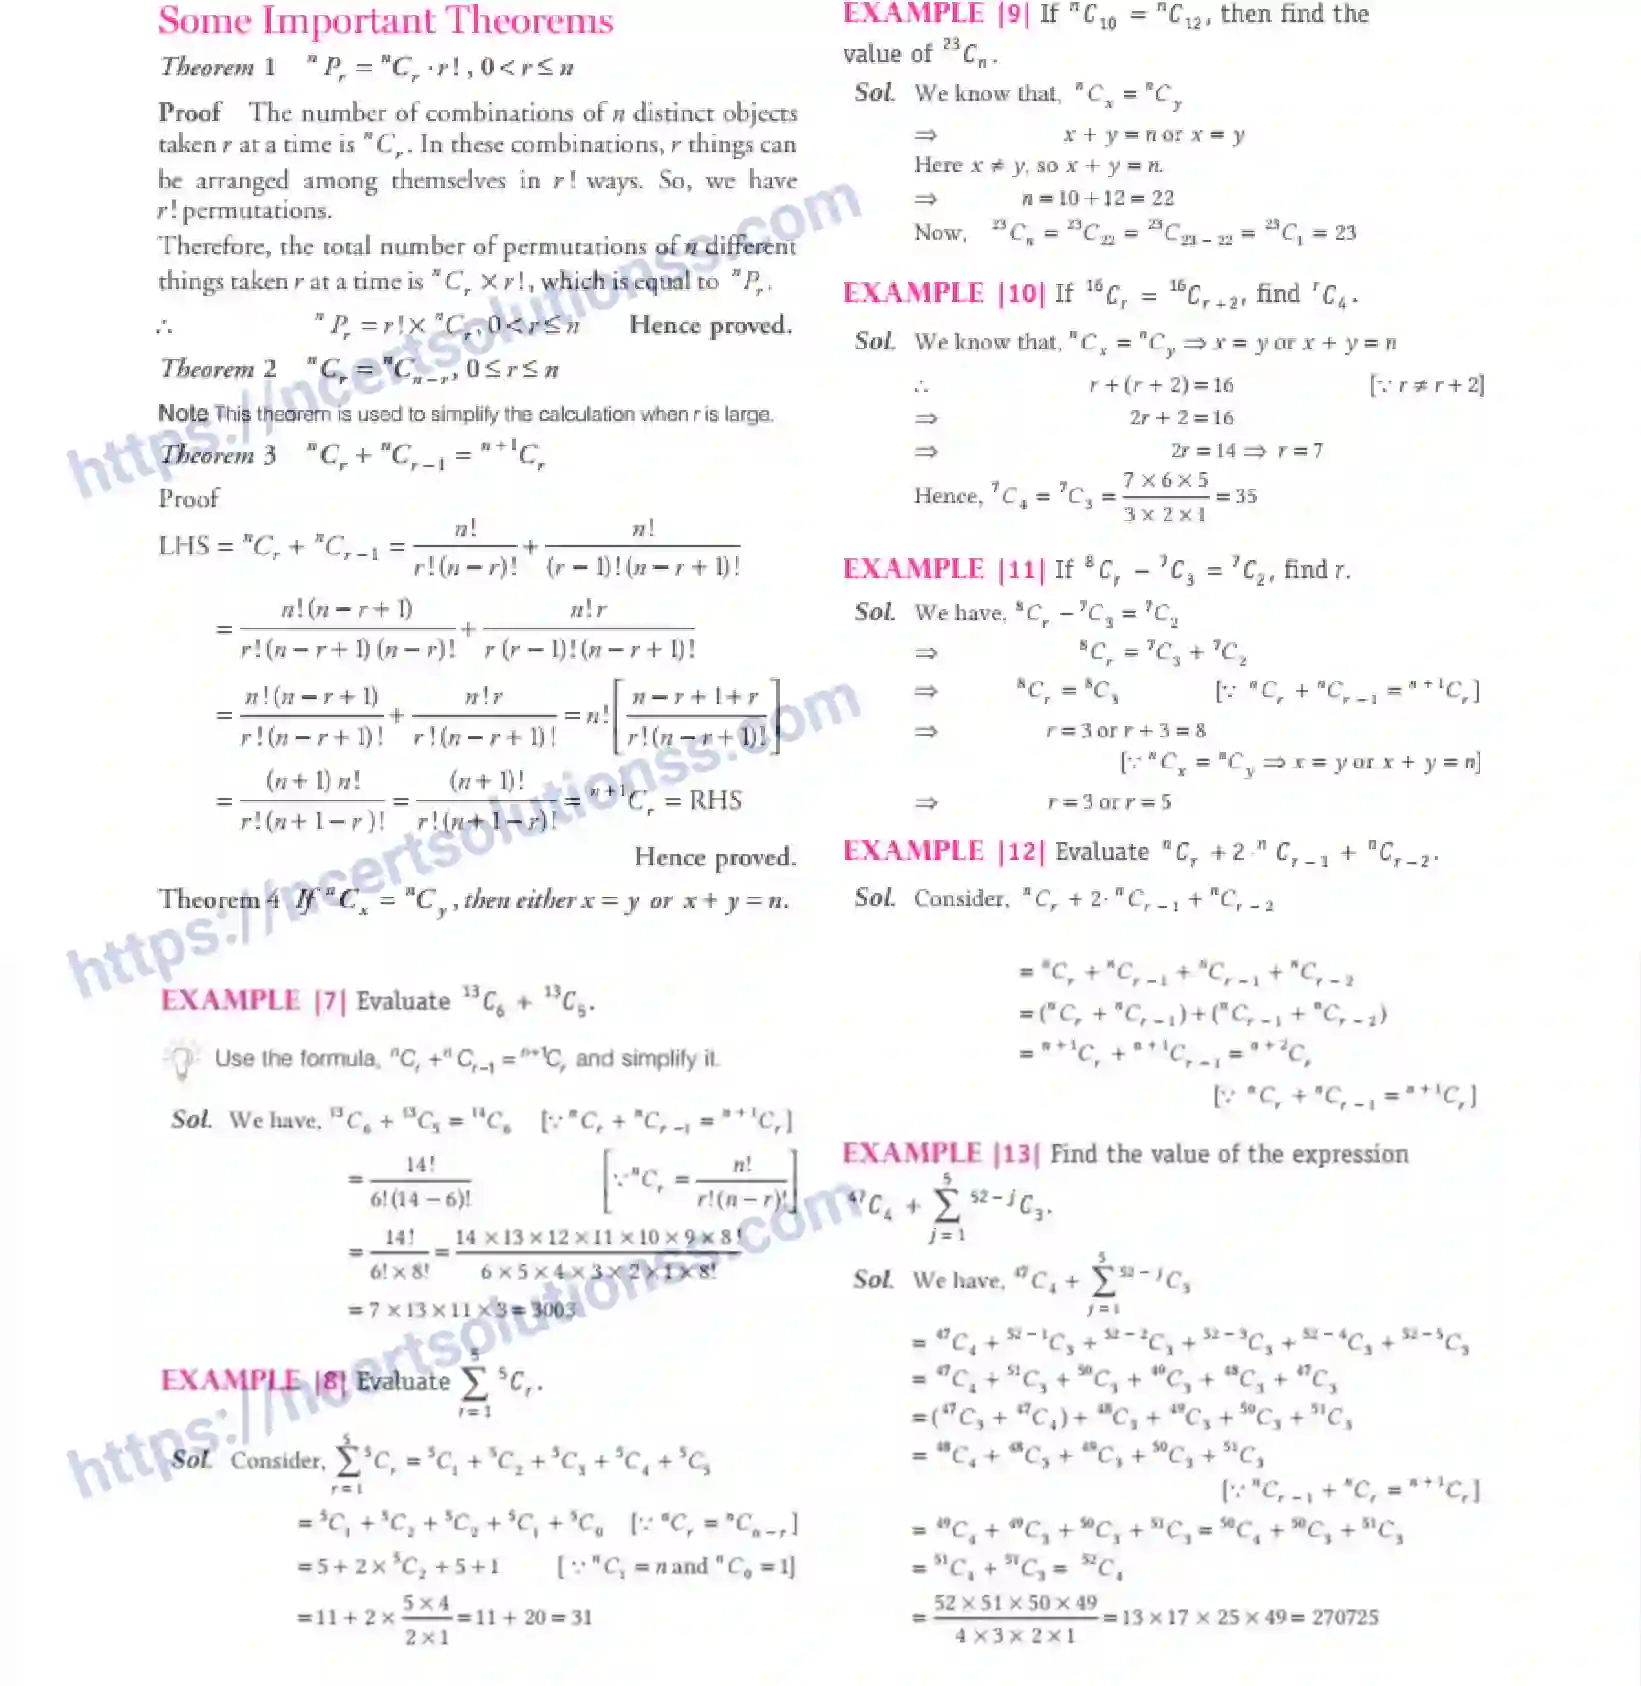 Some Important Theorems
Theorem 1 ⁿPᵣ = ⁿCᵣ · r! , 0 < r ≤ n
Proof The number of combinations of n distinct objects
taken r at a time is ⁿCᵣ. In these combinations, r things can
be arranged among themselves in r! ways. So, we have
r! permutations.
Therefore, the total number of permutations of n different
things taken r at a time is ⁿCᵣ × r!, which is equal to ⁿPᵣ.
∴ ⁿPᵣ = r! × ⁿCᵣ, 0 < r ≤ n Hence proved.
Theorem 2 ⁿCᵣ = ⁿC_{n−r}, 0 ≤ r ≤ n
Note This theorem is used to simplify the calculation when r is large.
Theorem 3 ⁿCᵣ + ⁿC_{r−1} = ^{n+1}Cᵣ
Proof
LHS = ⁿCᵣ + ⁿC_{r−1} = n!/(r!(n − r)!) + n!/((r − 1)!(n − r + 1)!)
= n!(n − r + 1)/(r!(n − r + 1)(n − r)!) + n! r/(r (r − 1)!(n − r + 1)!)
= n!(n − r + 1)/(r!(n − r + 1)!) + n! r/(r!(n − r + 1)!) = n![(n − r + 1 + r)/(r!(n − r + 1)!)]
= (n + 1) n!/(r!(n + 1 − r)!) = (n + 1)!/(r!(n + 1 − r)!) = ^{n+1}Cᵣ = RHS
Hence proved.
Theorem 4 If ⁿCₓ = ⁿC_y, then either x = y or x + y = n.
EXAMPLE |7| Evaluate ¹³C₆ + ¹³C₅.
Use the formula, ⁿCᵣ + ⁿC_{r−1} = ^{n+1}Cᵣ and simplify it.
Sol. We have, ¹³C₆ + ¹³C₅ = ¹⁴C₆ [∵ ⁿCᵣ + ⁿC_{r−1} = ^{n+1}Cᵣ]
= 14!/(6!(14 − 6)!) [∵ ⁿCᵣ = n!/(r!(n − r)!)]
= 14!/(6! × 8!) = (14 × 13 × 12 × 11 × 10 × 9 × 8!)/(6 × 5 × 4 × 3 × 2 × 1 × 8!)
= 7 × 13 × 11 × 3 = 3003
EXAMPLE |8| Evaluate ∑_{r=1}^{5} ⁵Cᵣ.
Sol. Consider, ∑_{r=1}^{5} ⁵Cᵣ = ⁵C₁ + ⁵C₂ + ⁵C₃ + ⁵C₄ + ⁵C₅
= ⁵C₁ + ⁵C₂ + ⁵C₂ + ⁵C₁ + ⁵C₀ [∵ ⁿCᵣ = ⁿC_{n−r}]
= 5 + 2 × ⁵C₂ + 5 + 1 [∵ ⁿC₁ = n and ⁿC₀ = 1]
= 11 + 2 × (5 × 4)/(2 × 1) = 11 + 20 = 31
EXAMPLE |9| If ⁿC₁₀ = ⁿC₁₂, then find the
value of ²³Cₙ.
Sol. We know that, ⁿCₓ = ⁿC_y
⇒ x + y = n or x = y
Here x ≠ y, so x + y = n.
⇒ n = 10 + 12 = 22
Now, ²³Cₙ = ²³C₂₂ = ²³C_{23 − 22} = ²³C₁ = 23
EXAMPLE |10| If ¹⁶Cᵣ = ¹⁶C_{r+2}, find ʳC₄.
Sol. We know that, ⁿCₓ = ⁿC_y ⇒ x = y or x + y = n
∴ r + (r + 2) = 16 [∵ r ≠ r + 2]
⇒ 2r + 2 = 16
⇒ 2r = 14 ⇒ r = 7
Hence, ⁷C₄ = ⁷C₃ = (7 × 6 × 5)/(3 × 2 × 1) = 35
EXAMPLE |11| If ⁸Cᵣ − ⁷C₃ = ⁷C₂, find r.
Sol. We have, ⁸Cᵣ − ⁷C₃ = ⁷C₂
⇒ ⁸Cᵣ = ⁷C₃ + ⁷C₂
⇒ ⁸Cᵣ = ⁸C₃ [∵ ⁿCᵣ + ⁿC_{r−1} = ^{n+1}Cᵣ]
⇒ r = 3 or r + 3 = 8
[∵ ⁿCₓ = ⁿC_y ⇒ x = y or x + y = n]
⇒ r = 3 or r = 5
EXAMPLE |12| Evaluate ⁿCᵣ + 2·ⁿC_{r−1} + ⁿC_{r−2}.
Sol. Consider, ⁿCᵣ + 2·ⁿC_{r−1} + ⁿC_{r−2}
= ⁿCᵣ + ⁿC_{r−1} + ⁿC_{r−1} + ⁿC_{r−2}
= (ⁿCᵣ + ⁿC_{r−1}) + (ⁿC_{r−1} + ⁿC_{r−2})
= ^{n+1}Cᵣ + ^{n+1}C_{r−1} = ^{n+2}Cᵣ
[∵ ⁿCᵣ + ⁿC_{r−1} = ^{n+1}Cᵣ]
EXAMPLE |13| Find the value of the expression
⁴⁷C₄ + ∑_{j=1}^{5} ^{52−j}C₃.
Sol. We have, ⁴⁷C₄ + ∑_{j=1}^{5} ^{52−j}C₃
= ⁴⁷C₄ + ^{52−1}C₃ + ^{52−2}C₃ + ^{52−3}C₃ + ^{52−4}C₃ + ^{52−5}C₃
= ⁴⁷C₄ + ⁵¹C₃ + ⁵⁰C₃ + ⁴⁹C₃ + ⁴⁸C₃ + ⁴⁷C₃
= (⁴⁷C₃ + ⁴⁷C₄) + ⁴⁸C₃ + ⁴⁹C₃ + ⁵⁰C₃ + ⁵¹C₃
= ⁴⁸C₄ + ⁴⁸C₃ + ⁴⁹C₃ + ⁵⁰C₃ + ⁵¹C₃
[∵ ⁿC_{r−1} + ⁿCᵣ = ^{n+1}Cᵣ]
= ⁴⁹C₄ + ⁴⁹C₃ + ⁵⁰C₃ + ⁵¹C₃ = ⁵⁰C₄ + ⁵⁰C₃ + ⁵¹C₃
= ⁵¹C₄ + ⁵¹C₃ = ⁵²C₄
= (52 × 51 × 50 × 49)/(4 × 3 × 2 × 1) = 13 × 17 × 25 × 49 = 270725
https://ncertsolutionss.com
https://ncertsolutionss.com
https://ncertsolutionss.com